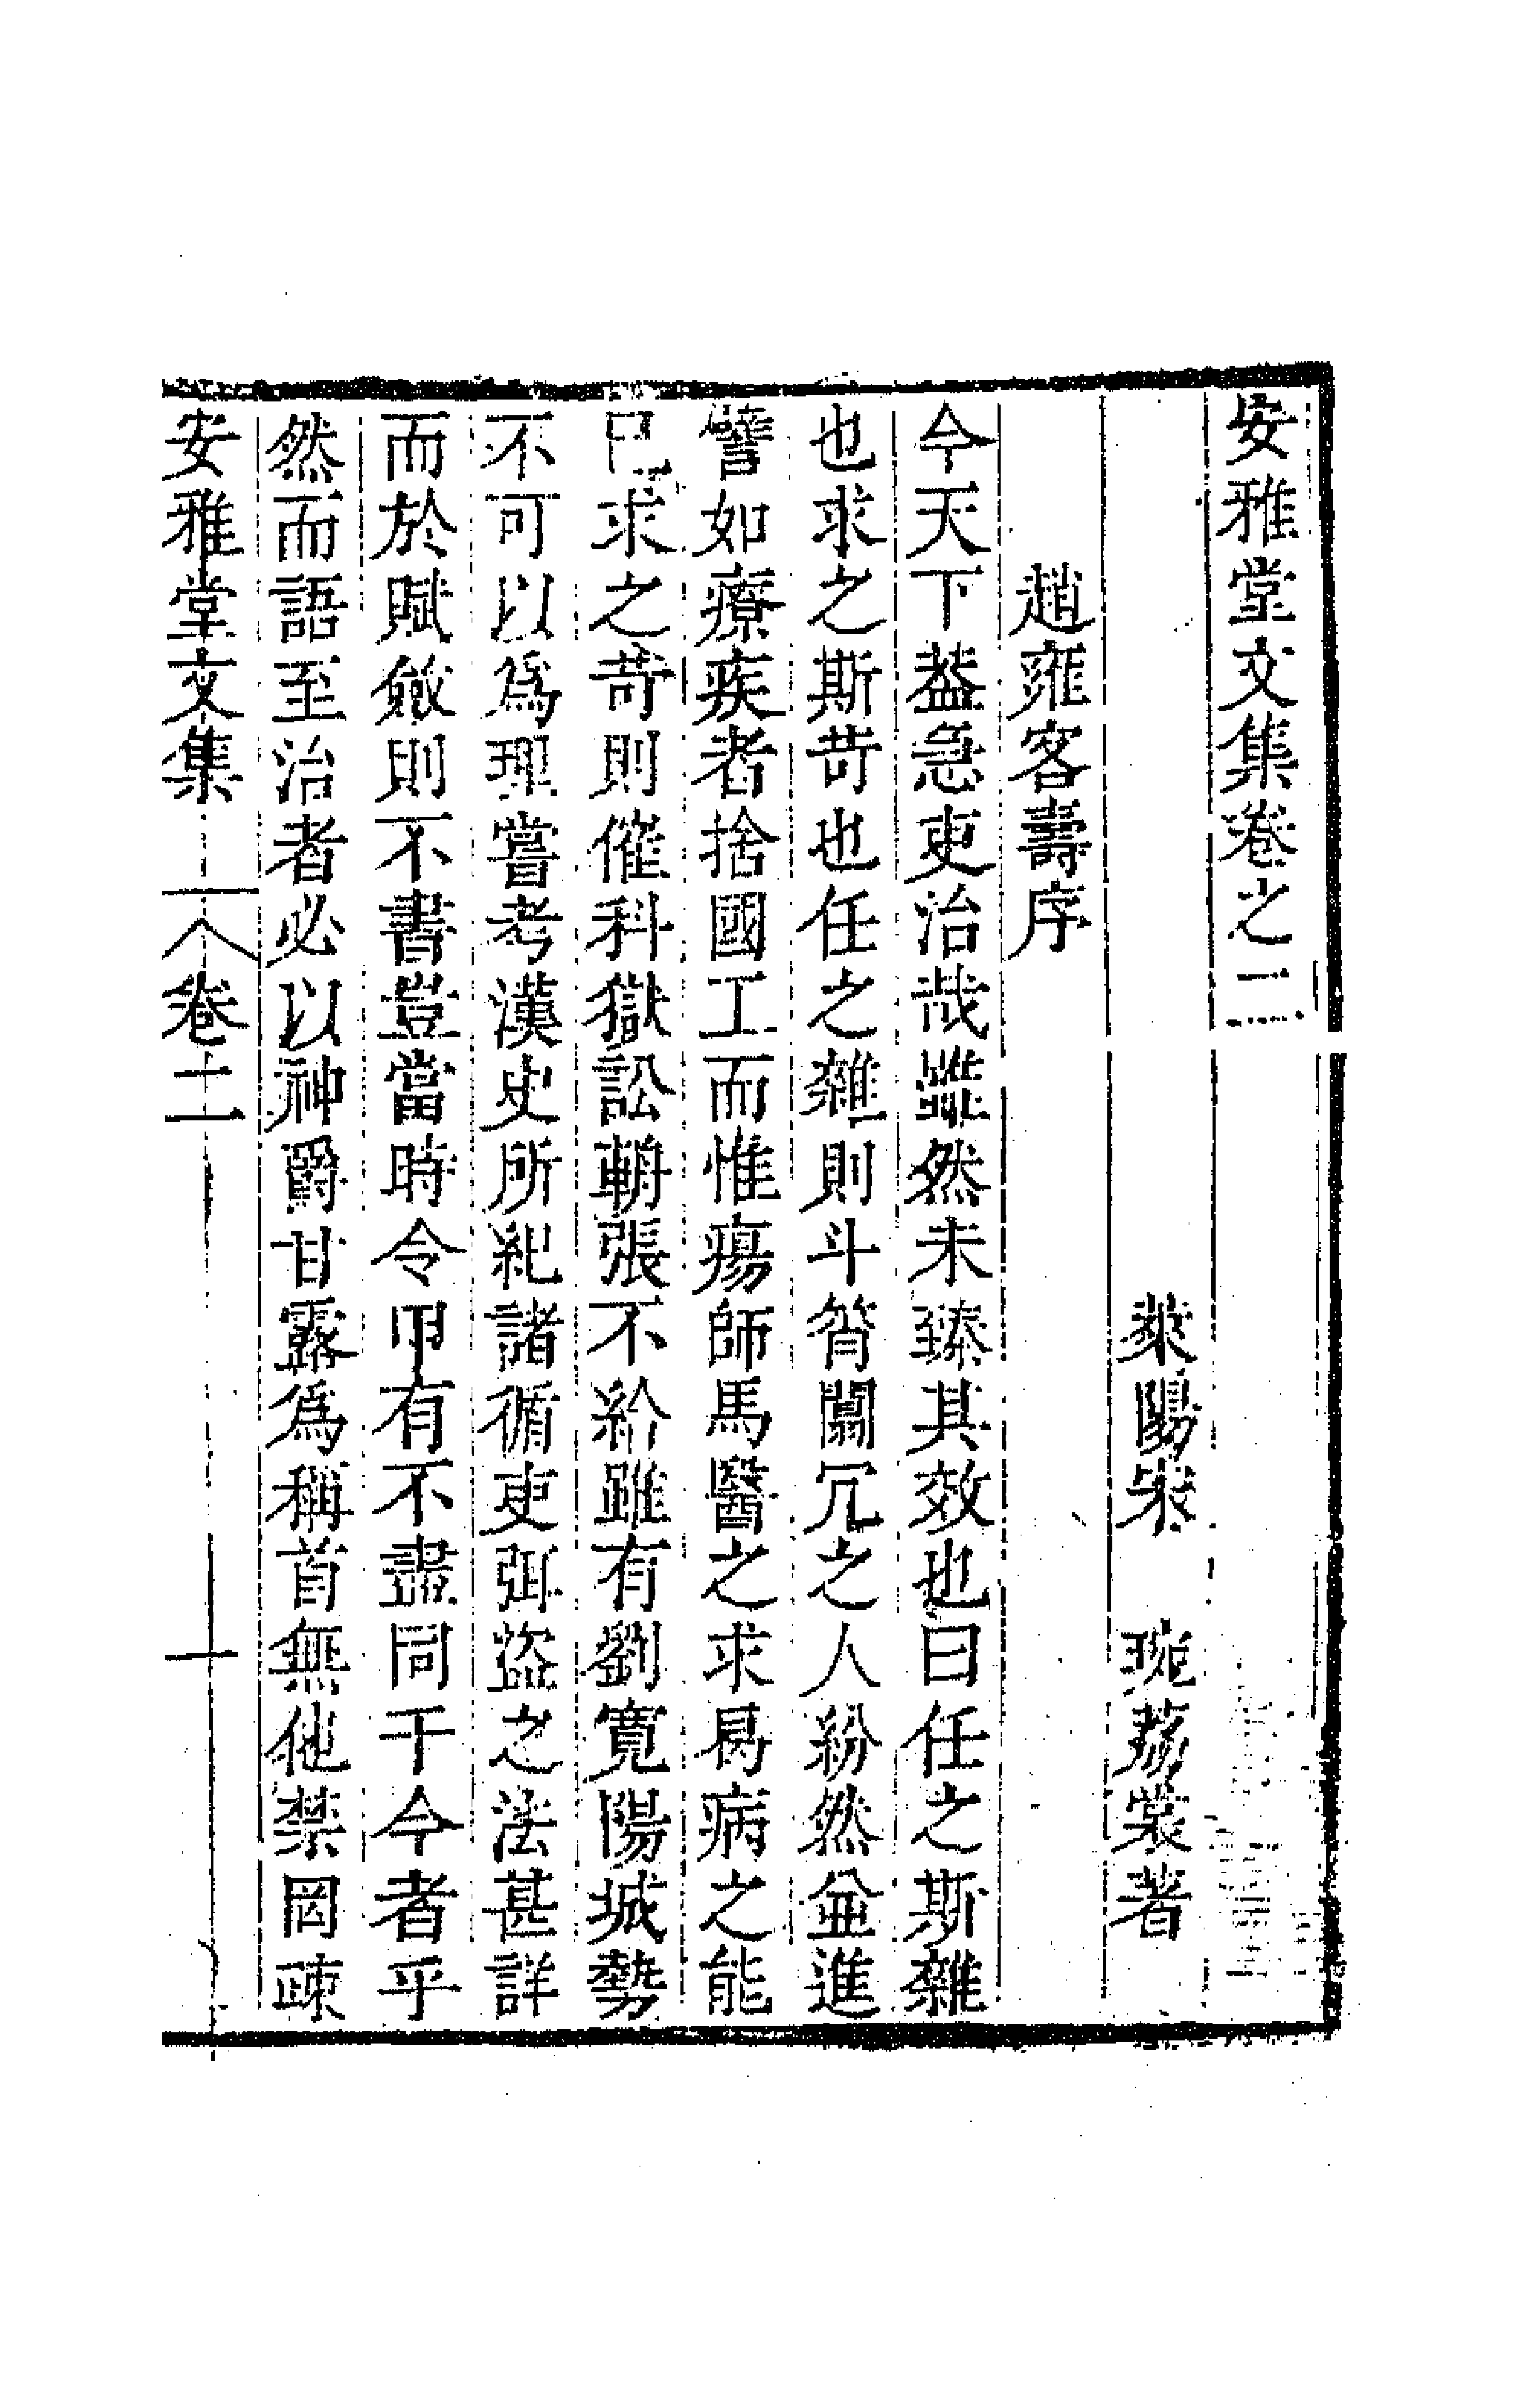 安雅堂文集卷之二
萊陽宋 琬荔裳著
趙雍客壽序
今天下葢急吏治哉雖然未臻其效也曰任之斯雜
也求之斯苛也任之雜則斗筲闒冗之人紛然並進
譬如療疾者捨國工而惟瘍師馬醫之求曷病之能
已求之苛則催科獄訟輈張不給雖有劉寬陽城勢
不可以爲理嘗考漢史所紀諸循吏弭盜之法甚詳
而於賦斂則不書豈當時令甲有不盡同于今者乎
然而語至治者必以神爵甘露爲稱首無他禁罔疎
安雅堂文集 卷二 一